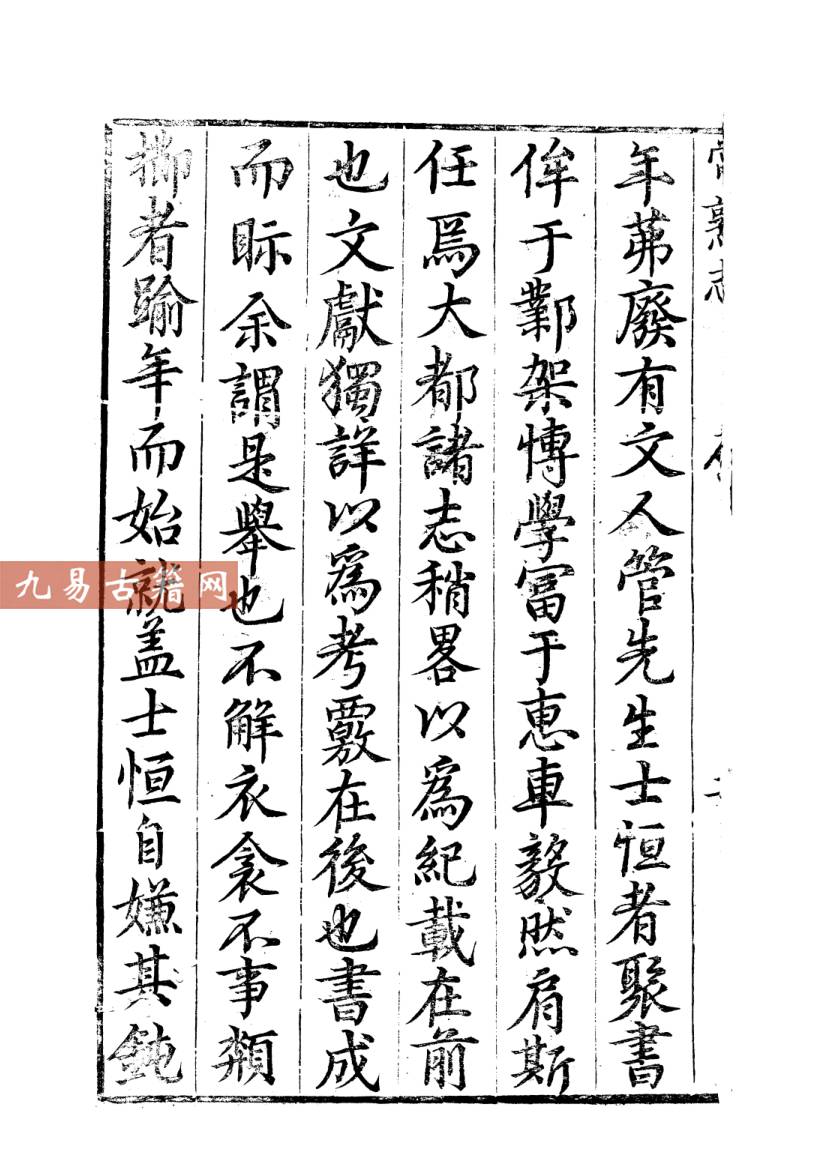 常熟志
年茀廢有文人管先生士恒者聚書
侔于鄴架博學富于惠車毅然肩斯
任焉大都諸志稍畧以爲紀載在前
也文獻獨詳以爲考覈在後也書成
而眎余謂是舉也不解衣衾不事纇
擳者踰年而始就盖士恒自嫌其鈍
九易古籍网